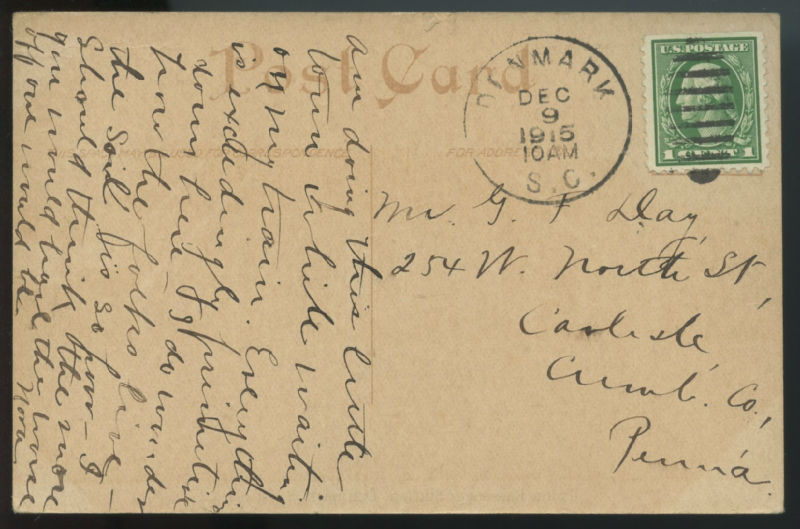 Post Card
THIS SPACE MAY BE USED FOR CORRESPONDENCE
FOR ADDRESS
DENMARK
DEC
9
1915
10AM
S.C.
U.S. POSTAGE
1 CENT 1
am doing this little
town while waitin
on my train. Everything
is exceedingly primitive
down here - I do wonder
how the folks live -
the soil is so poor - I
should think the more
you would the worse
off one would be.
Nora
Mr. G. F. Day,
254 W. North St,
Carlisle,
Cumb. Co.,
Penna.